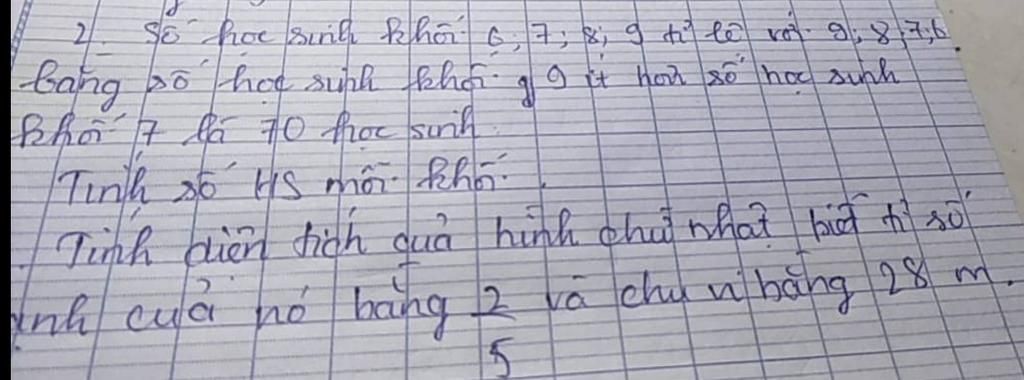 2. Số học sinh khối 6; 7; 8; 9 tỉ lệ với 9; 8; 7; 6
bằng số học sinh khối 9 ít hơn số học sinh
khối 7 là 70 học sinh
Tính số HS mỗi khối.
Tính diện tích quả hình chữ nhật biết tỉ số
của nó bằng 2/5 và chu vi bằng 28 m.